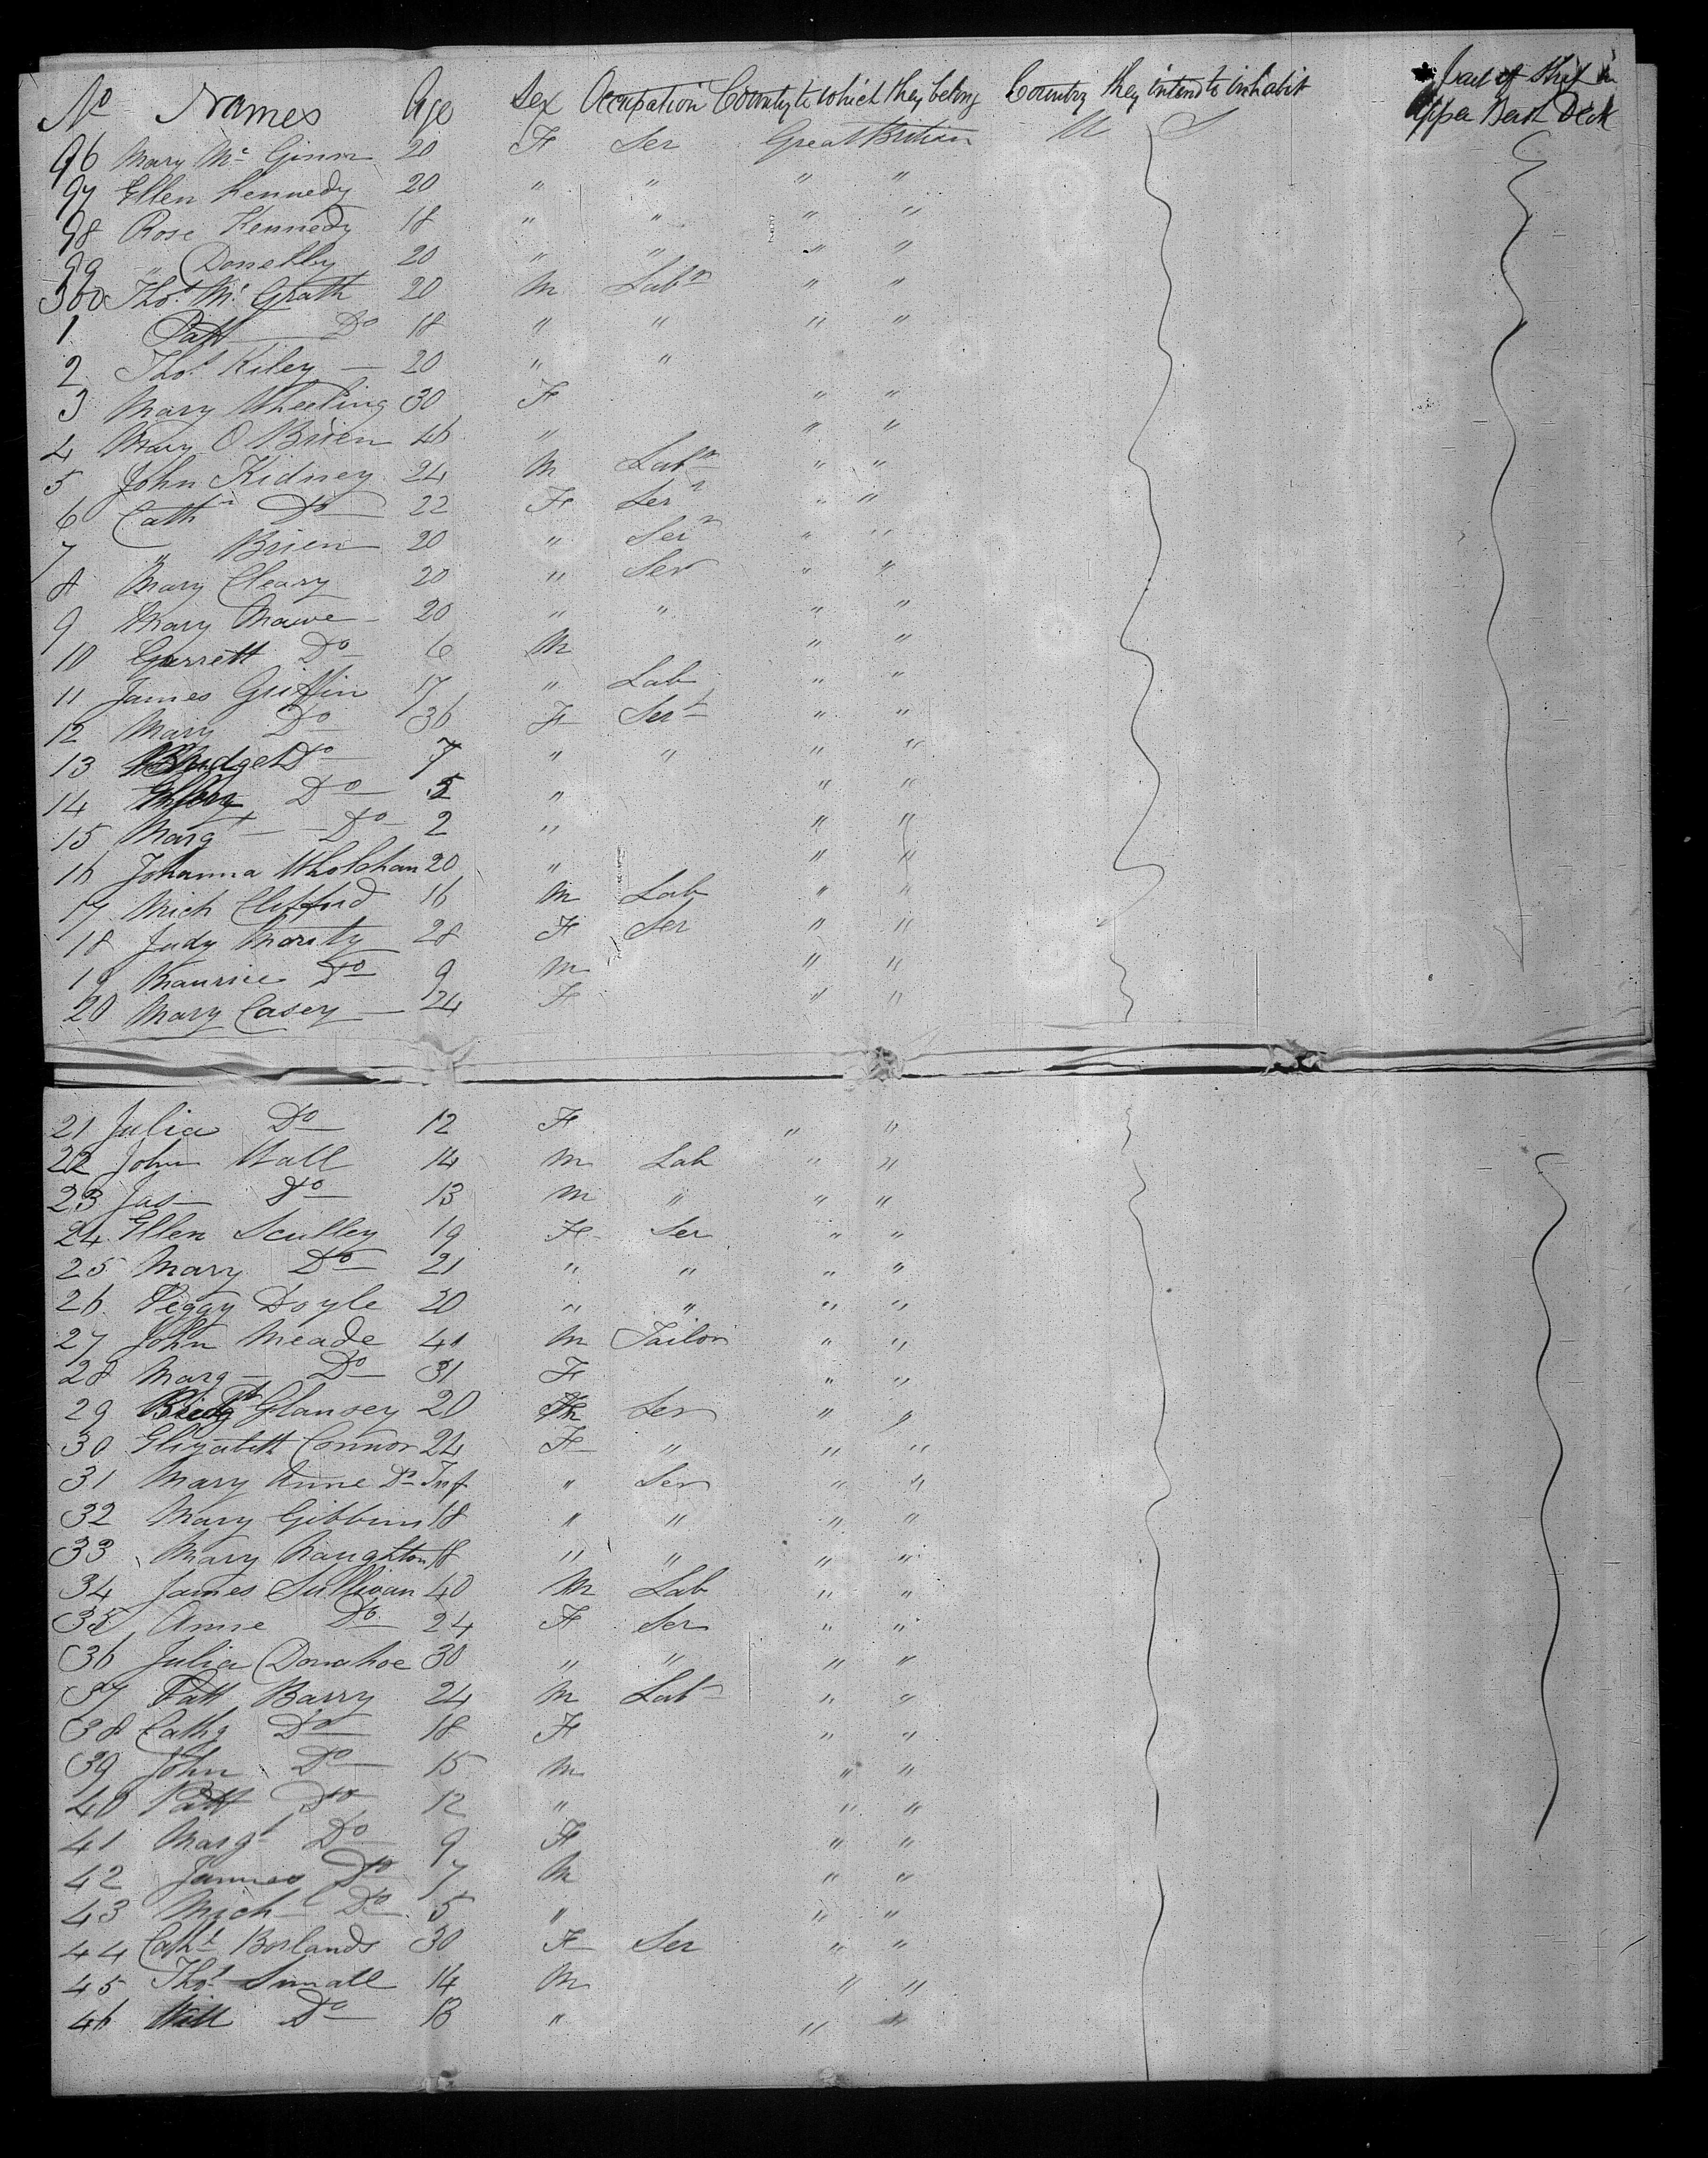 No Names Age Sex Occupation Country to which they belong Country they intend to inhabit Part of Ship in Upper Deck
96 Mary Mc Ginn 20 F Ser Great Britian U S
97 Ellen Kennedy 20 " " " "
98 Rose Kennedy 18 " " " "
99 " Donelly 20 " " " "
300 Thos Mc Grath 20 M Labr " "
1 Patt Do 18 " " " "
2 Thos Kiley 20 " "
3 Mary Wheeling 30 F " "
4 Mary O Brien 46 " " "
5 John Kidney 24 M Labr " "
6 Cathn Do 22 F Serv " "
7 " Brien 20 " Serv " "
8 Mary Cleary 20 " Ser " "
9 Mary Mawe 20 " " " "
10 Garrett Do 6 M " "
11 James Griffin 17 " Lab " "
12 Mary Do 36 F Sert " "
13 Bridget Do 7 " " " "
14 Do 5 " " "
15 Margt Do 2 " " "
16 Johanna Wholohan 20 " " "
17 Mich Clifford 16 M Lab " "
18 Judy Mority 28 F Ser " "
19 Maurice Do 9 M " "
20 Mary Casey 24 F " "
21 Julia Do 12 F " "
22 John Wall 14 M Lab " "
23 Jas Do 13 M " " "
24 Ellen Sculley 19 F Ser " "
25 Mary Do 21 " " " "
26 Peggy Doyle 20 " " " "
27 John Meade 41 M Tailor " "
28 Marg Do 31 F " "
29 Bridgt Glansey 20 F Ser " "
30 Elizabeth Connor 24 F " " "
31 Mary Anne Do Inf " Ser " "
32 Mary Gibbins 18 " " " "
33 Mary Naughton 18 " " " "
34 James Sullivan 40 M Lab " "
35 Anne Do 24 F Ser " "
36 Julia Donahoe 30 " " " "
37 Patt Barry 24 M Lab " "
38 Cathy Do 18 F " "
39 John Do 15 M " "
40 Patt Do 12 " " "
41 Margt Do 9 F " "
42 James Do 7 M " "
43 Michl Do 5 " " "
44 Catht Borlands 30 F Ser " "
45 Thos Small 14 M " "
46 Will Do 13 " " "